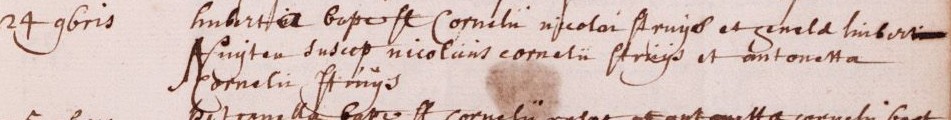 24 9bris hubert et bapt f Cornelii nicolai struijs et geneld huberti
Nuijten suscep nicolaus cornelii struijs et antonetta
Cornelii struijs
petronella bapt f cornelij et antonetta cornelii